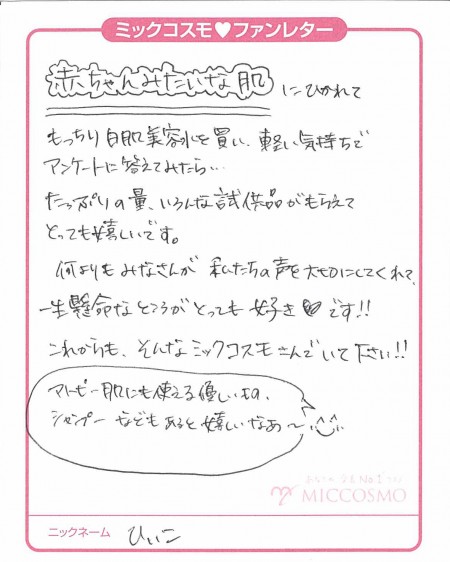 ミックコスモ♥ファンレター
赤ちゃんみたいな肌 にひかれて
もっちり白肌美容水を買い、軽い気持ちで
アンケートに答えてみたら…
たっぷりの量、いろんな試供品がもらえて
とっても嬉しいです。
何よりもみなさんが 私たちの声を大切にしてくれて、
一生懸命なところがとっても好き♥です!!
これからも、そんなミックコスモさんでいて下さい!!
アトピー肌にも使える優しいもの、
シャンプーなどもあると嬉しいなあ〜
No.1
MICCOSMO
ニックネーム ひいこ